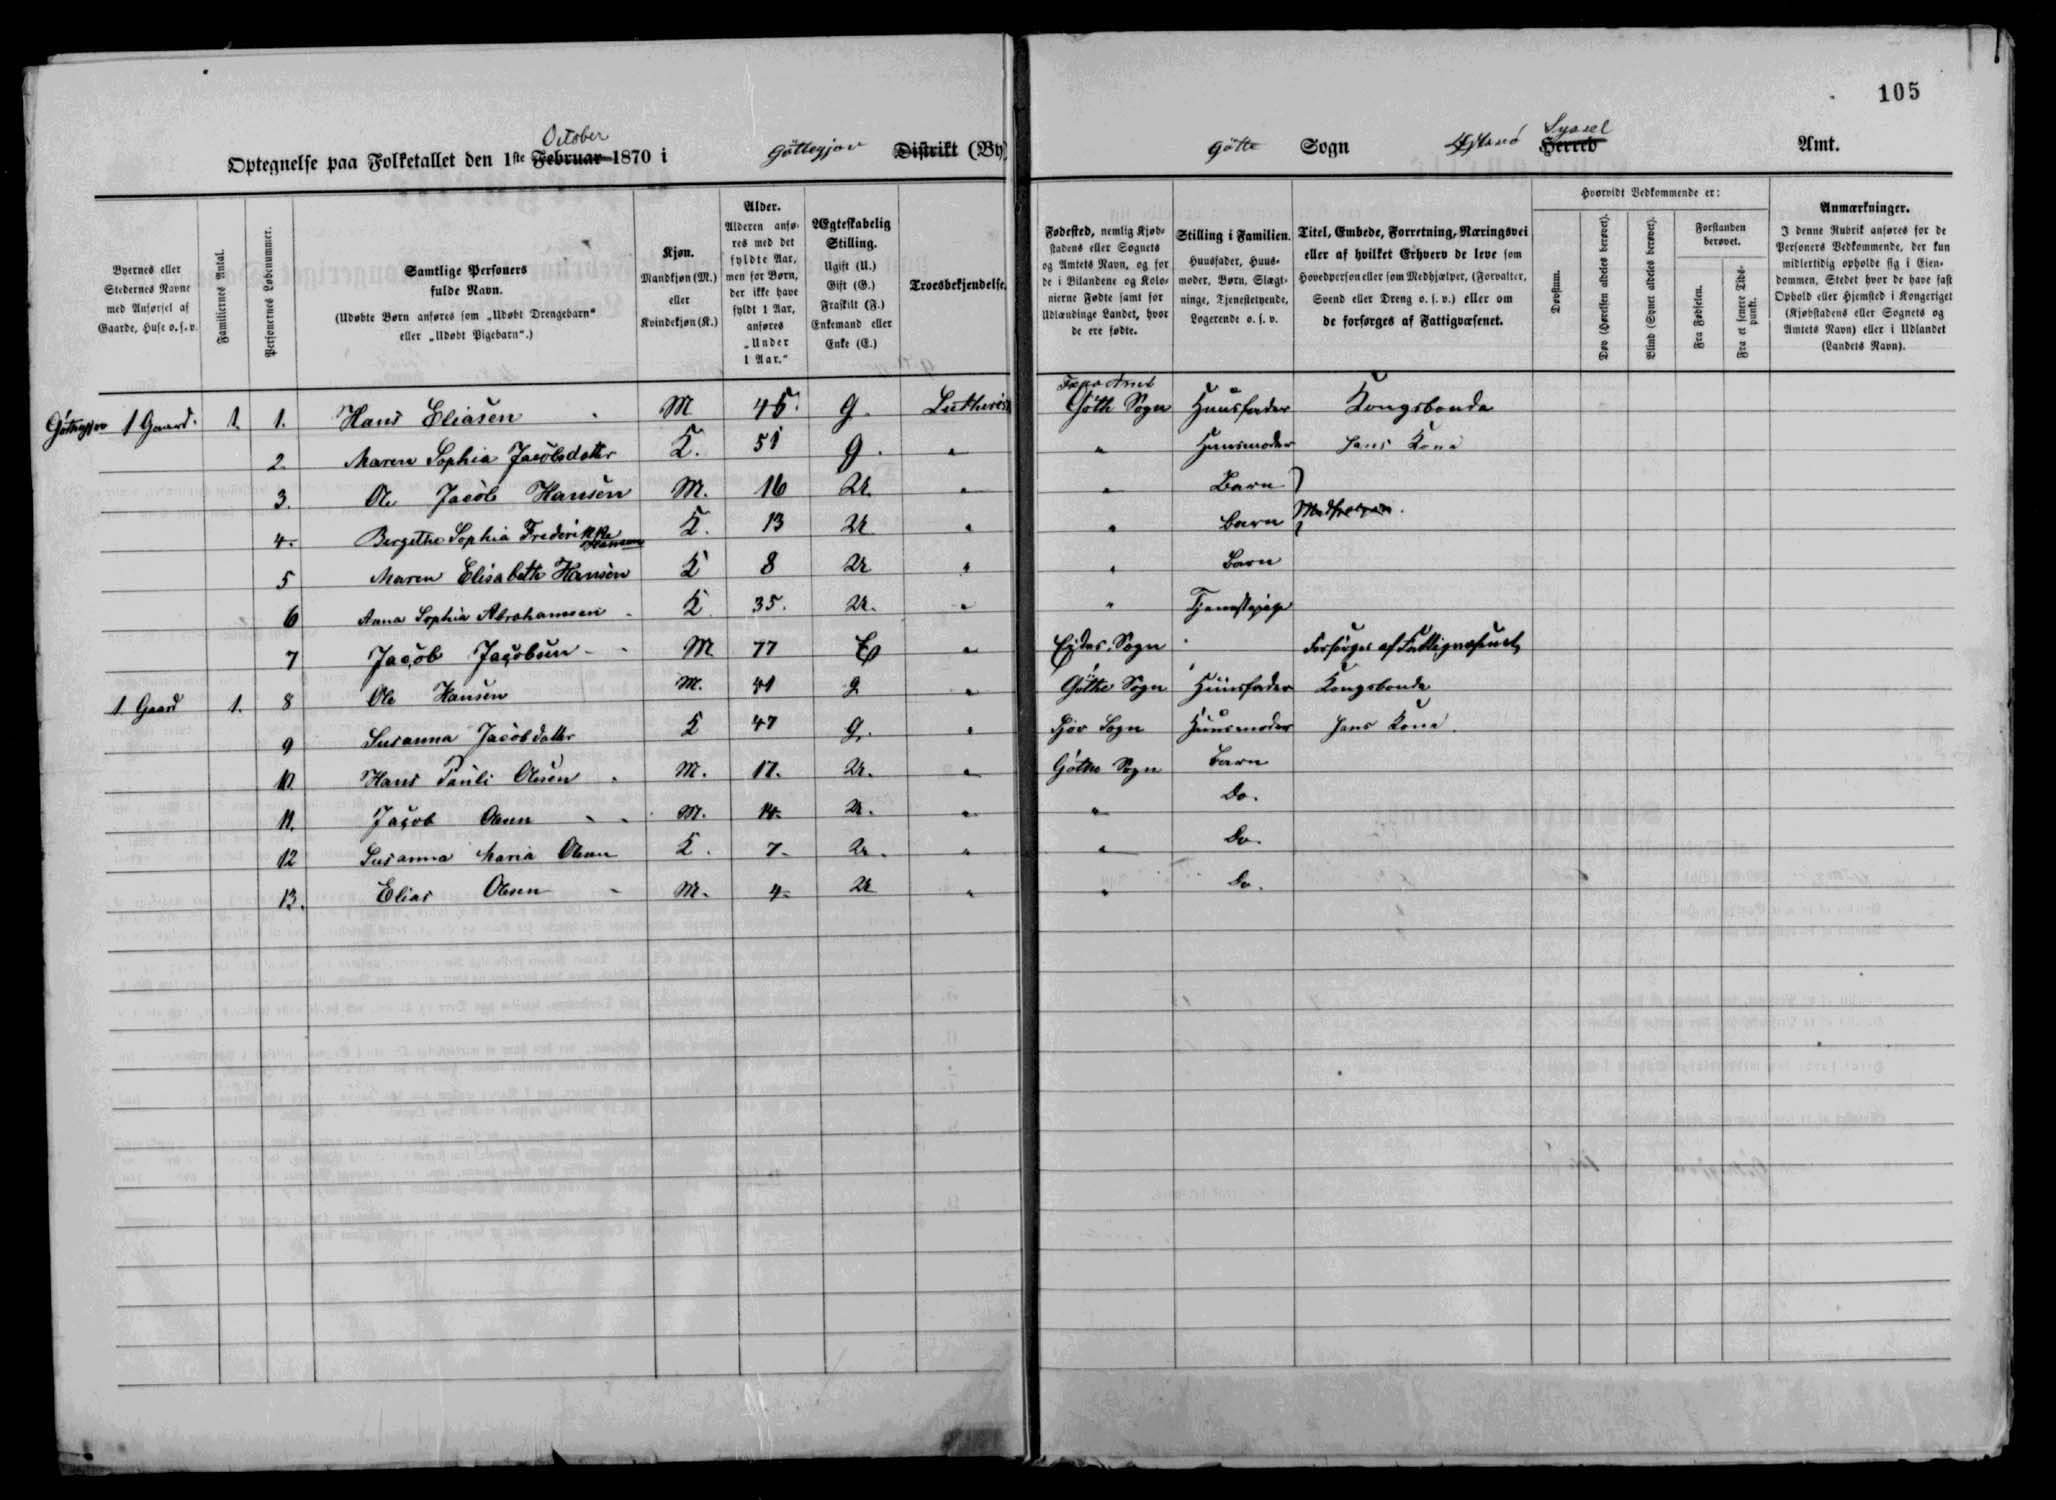 105
October
Optegnelse paa Folketallet den 1ste Februar 1870 i Göttegjov Distrikt (By)
Syssel
Götte Sogn Østerø Herred Amt.
Byernes eller Stedernes Navne med Anførsel af Gaarde, Huse o. s. v.
Familiernes Antal.
Personernes Løbenummer.
Samtlige Personers fulde Navn.
(Udøbte Børn anføres som „Udøbt Drengebarn“ eller „Udøbt Pigebarn“.)
Kjøn.
Mandkjøn (M.) eller Kvindekjøn (K.)
Alder.
Alderen anføres med det fyldte Aar, men for Børn, der ikke have fyldt 1 Aar, anføres „Under 1 Aar.“
Ægteskabelig Stilling.
Ugift (U.) Gift (G.) Fraskilt (F.) Enkemand eller Enke (E.)
Troesbekjendelse.
Fødested, nemlig Kjøbstadens eller Sognets og Amtets Navn, og for de i Bilandene og Kolonierne Fødte samt for Udlændinge Landet, hvor de ere fødte.
Stilling i Familien.
Huusfader, Huusmoder, Børn, Slægtninge, Tjenestetyende, Logerende o. s. v.
Titel, Embede, Forretning, Næringsvei eller af hvilket Erhverv de leve som Hovedperson eller som Medhjælper, (Forvalter, Svend eller Dreng o. s. v.) eller om de forsørges af Fattigvæsenet.
Hvorvidt Vedkommende er:
Døvstum.
Døv (Hørelsen aldeles berøvet).
Blind (Synet aldeles berøvet).
Forstanden berøvet.
Fra Fødselen.
Fra et senere Tidspunkt.
Anmærkninger.
I denne Rubrik anføres for de Personers Vedkommende, der kun midlertidig opholde sig i Eiendommen, Stedet hvor de have fast Ophold eller Hjemsted i Kongeriget (Kjøbstadens eller Sognets og Amtets Navn) eller i Udlandet (Landets Navn).
1 Gaard. 1. 1. Hans Eliasen M 45. G. Göth Sogn Huusfader Kongsbonde
2. Maren Sophia Jacobsdatter K. 51 G. " " Huusmoder Hans Kone
3. Ole Jacob Hansen M. 16 U. " " Barn
4. Bergithe Sophia Frederikke Hansen K. 13 U " " Barn
5 Maren Elisabeth Hansen K 8 U " " Barn
6 Anna Sophia Abrahamsen K 35. U. " " Tjenestepige
7 Jacob Jacobsen M 77 E " Eides Sogn " Forsörges af Fattigvæsenet
1 Gaard 1. 8 Ole Hansen M. 41 G " Göthe Sogn Huusfader Kongsbonde
9 Susanna Jacobdatter K 47 G. " Sogn Huusmoder Hans Kone.
10 Hans Pauli Olesen M. 17. U. " Göthe Sogn Barn
11. Jacob Olesen M. 14. U. " " Do.
12 Susanna Maria Olesen K. 7. U. " " Do.
13. Elias Olesen M. 4. U " " Do.